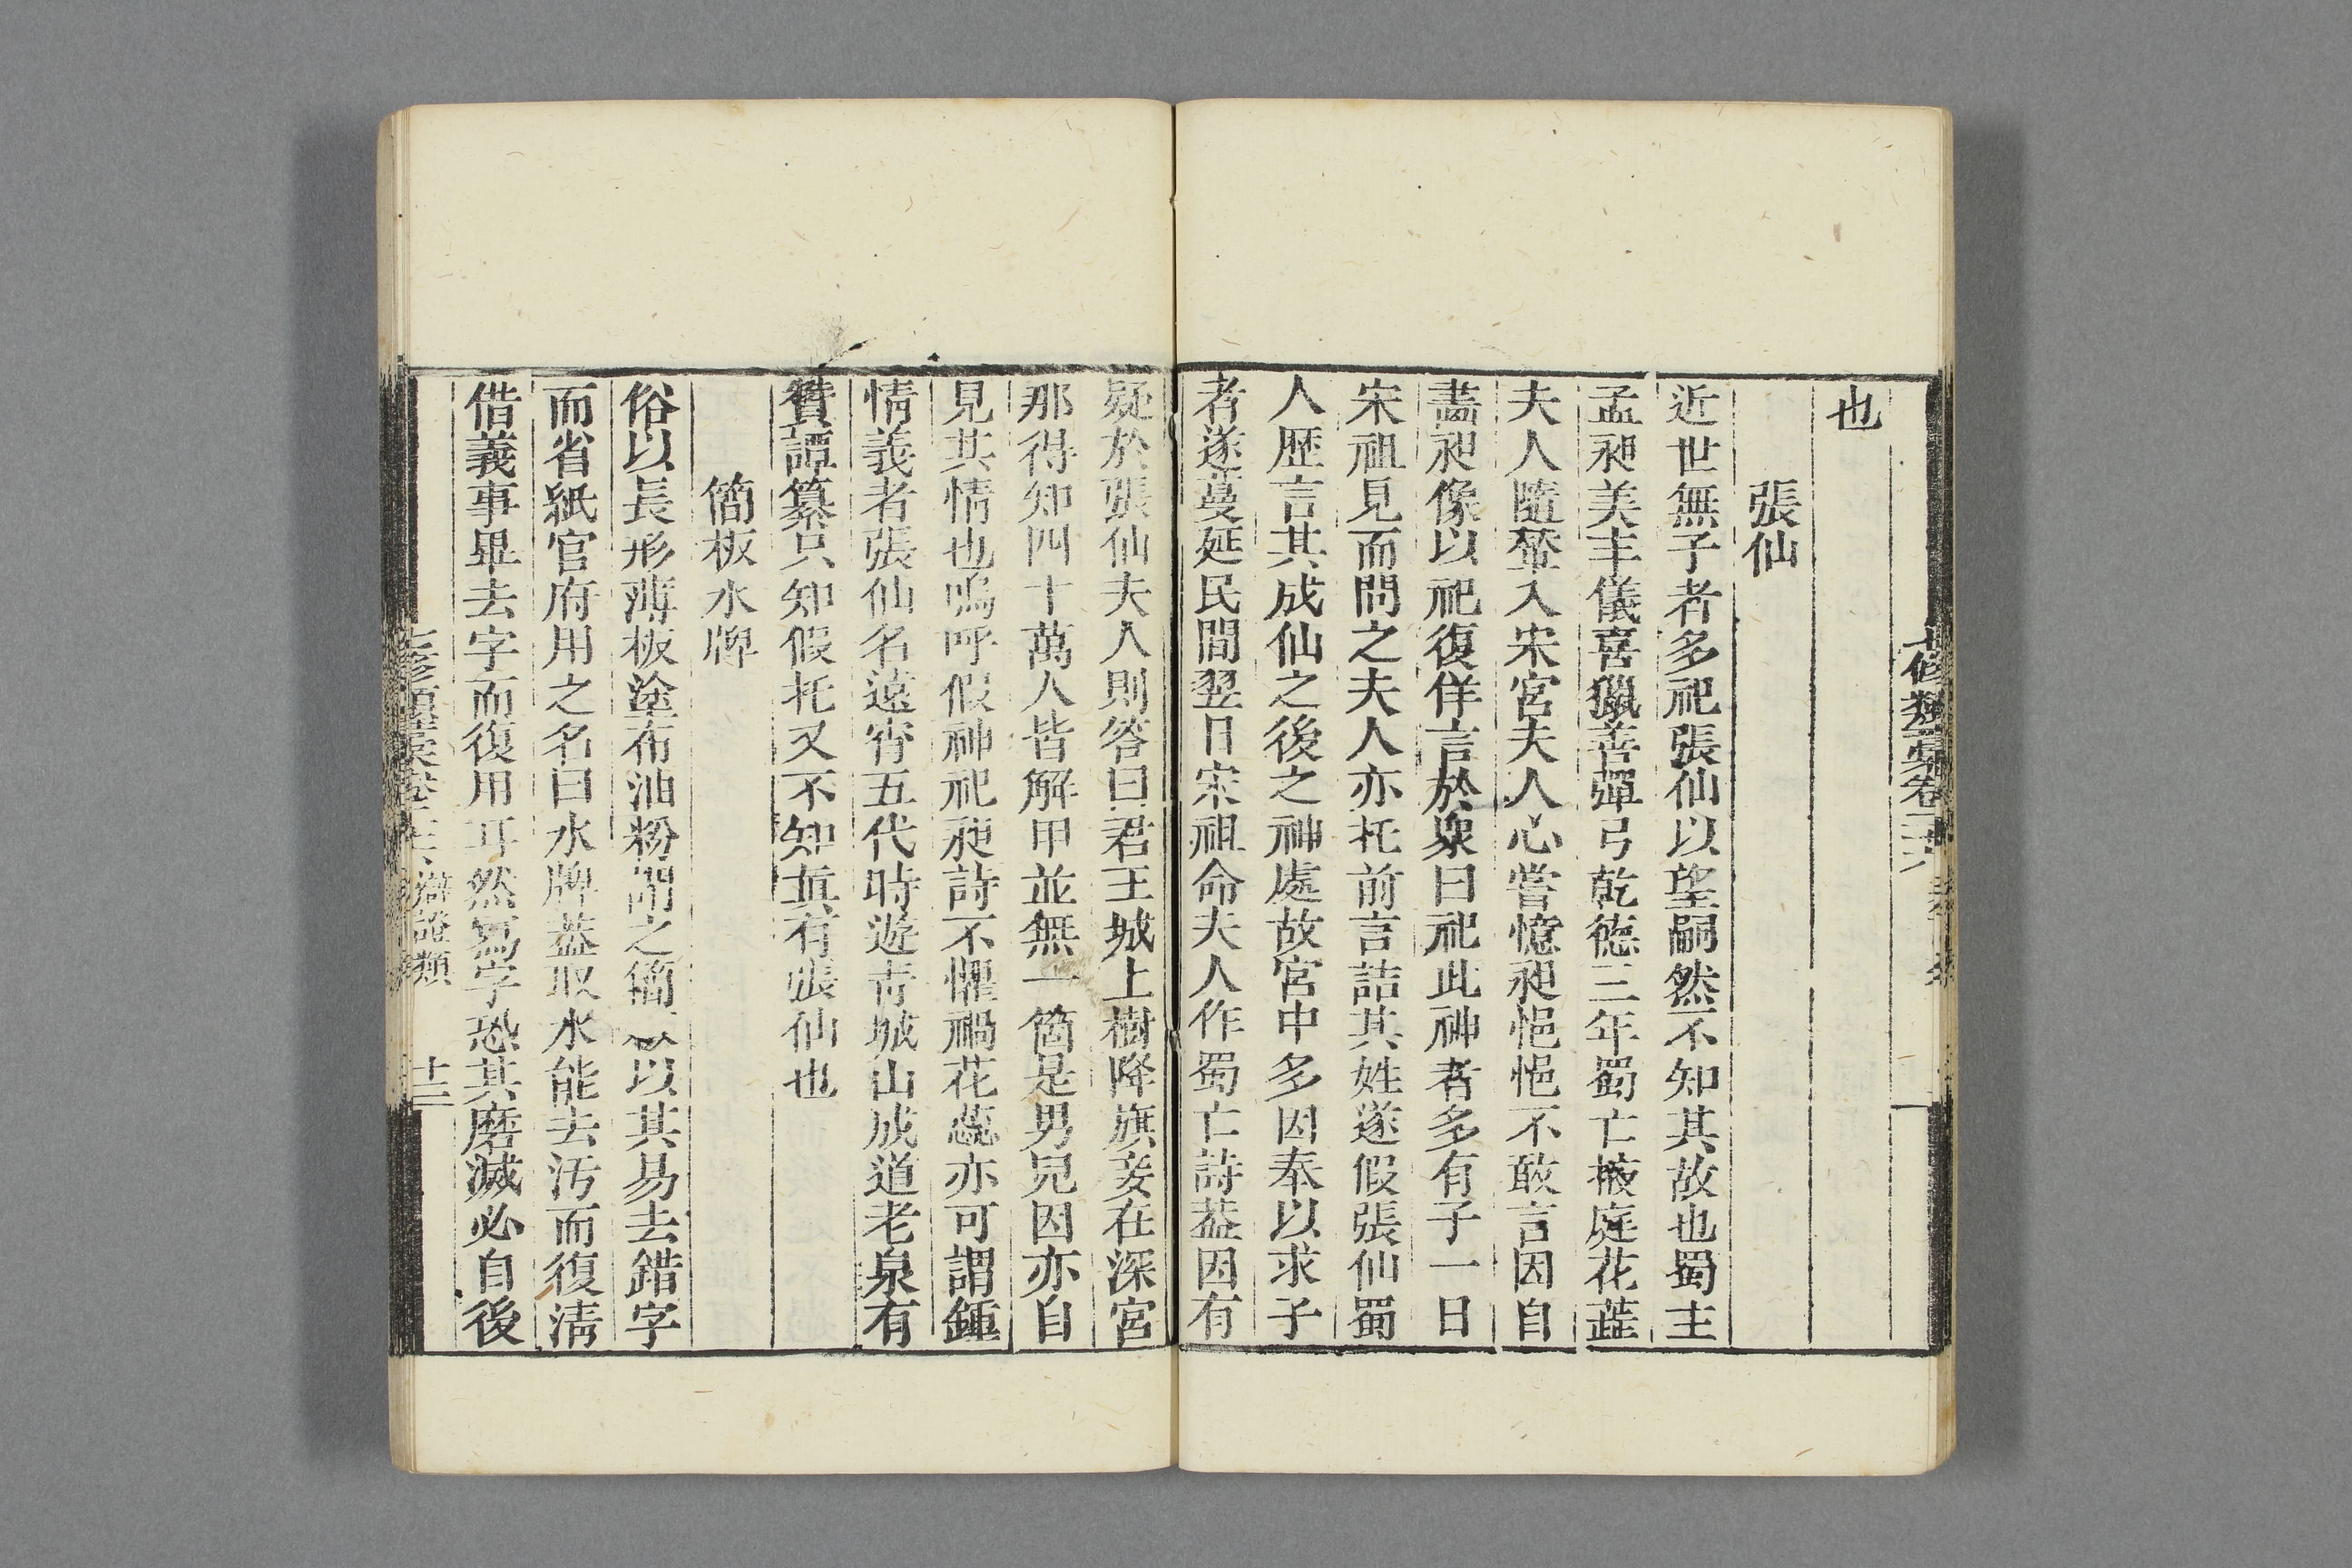 也
張仙
近世無子者多祀張仙以望嗣然不知其故也蜀主
孟昶美丰儀喜獵善彈弓乾德三年蜀亡掖庭花蕋
夫人隨輦入宋宮夫人心嘗憶昶悒悒不敢言因自
畵昶像以祀復佯言於衆曰祀此神者多有子一日
宋祖見而問之夫人亦托前言詰其姓遂假張仙蜀
人歷言其成仙之後之神處故宮中多因奉以求子
者遂蔓延民間翌日宋祖命夫人作蜀亡詩葢因有
疑於張仙夫人則答曰君王城上樹降旗妾在深宮
那得知四十萬人皆解甲並無一箇是男兒因亦自
見其情也嗚呼假神祀昶詩不懼禍花蕊亦可謂鍾
情義者張仙名遠霄五代時遊青城山成道老泉有
贊譚纂只知假托又不知眞有張仙也
簡板水牌
俗以長形薄板塗布油粉謂之簡以其易去錯字
而省紙官府用之名曰水牌葢取水能去汚而復淸
借義事畢去字而復用耳然寫字恐其磨滅必自後